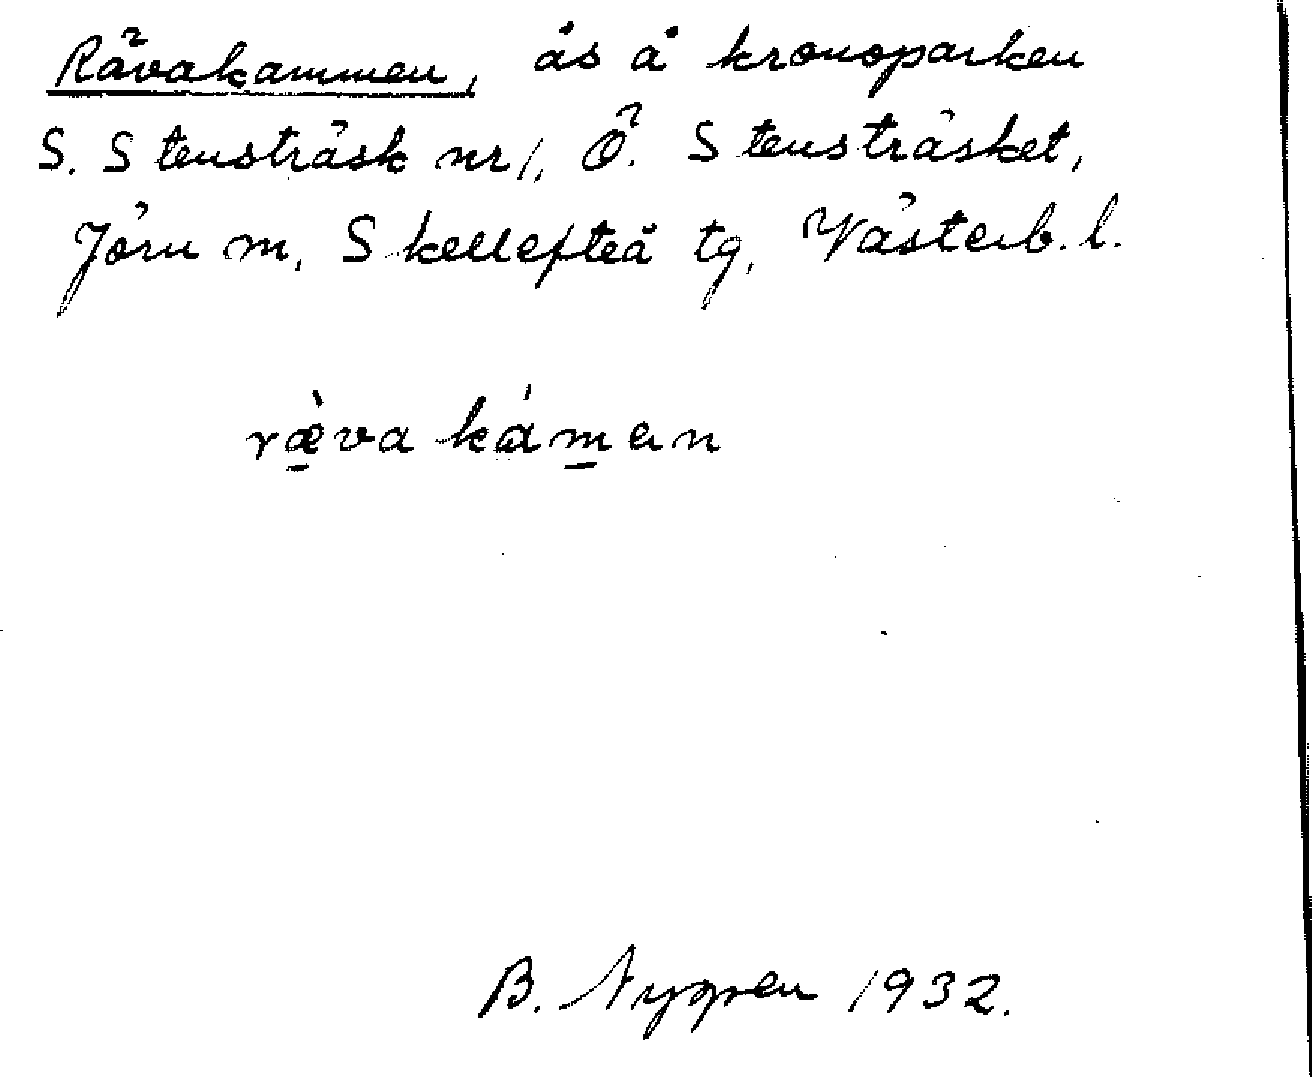 Rävakammen, ås å kronoparken
S. Stensträsk nr 1, Ö. Stensträsket,
Jörn sn, Skellefteå tg, Västerb. l.
ræ̀va káman
B. Nygren 1932.